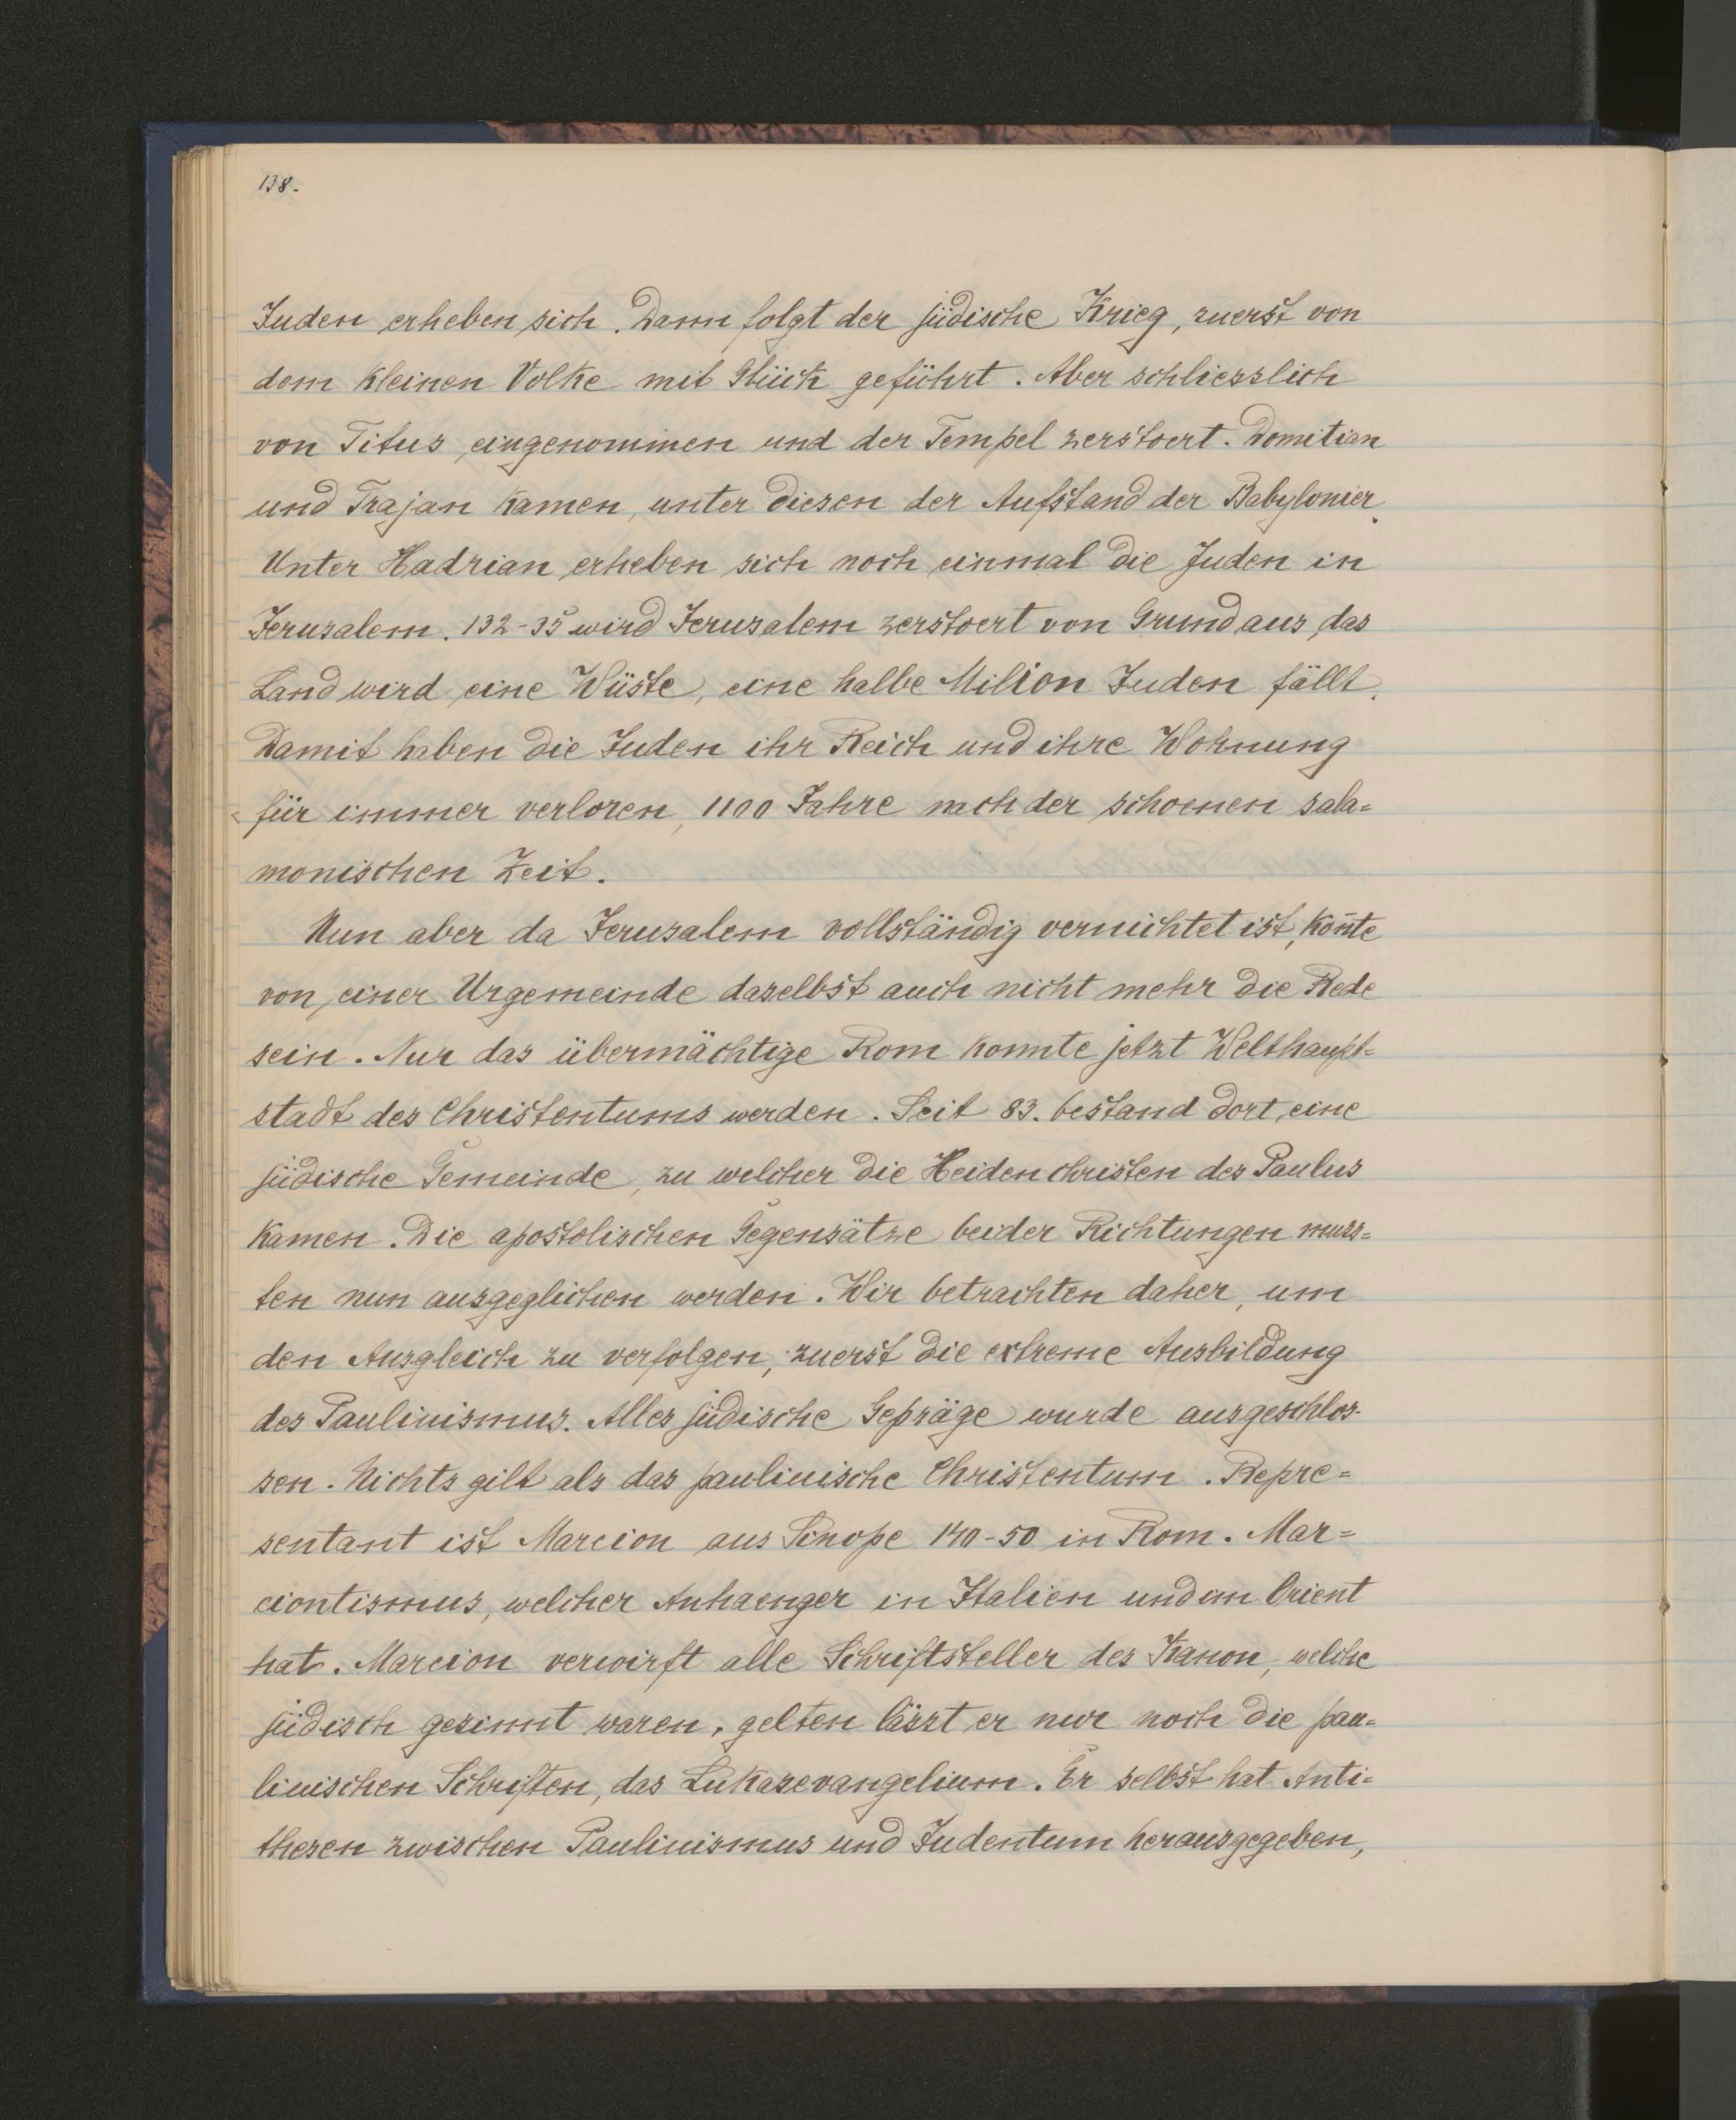 138.
Juden erheben sich. Dann folgt der jüdische Krieg, zuerst von
dem kleinen Volke mit Glück geführt. Aber schliesslich
von Titus eingenommen und der Tempel zerstoert. Domitian
und Trajan kamen, unter diesen der Aufstand der Babylonier.
Unter Hadrian erheben sich noch einmal die Juden in
Jerusalem. 132-35 wird Jerusalem zerstoert von Grund aus, das
Land wird eine Wüste, eine halbe Milion Juden fällt.
Damit haben die Juden ihr Reich und ihre Wohnung
für immer verloren, 1100 Jahre nach der schoenen sala=
monischen Zeit.
Nun aber da Jerusalem vollständig vernichtet ist, kon̄te
von einer Urgemeinde daselbst auch nicht mehr die Rede
sein. Nur das übermächtige Rom konnte jetzt Welthaupt=
stadt des Christentums werden. Seit 83. bestand dort eine
jüdische Gemeinde, zu welcher die Heidenchristen des Paulus
kamen. Die apostolischen Gegensätze beider Richtungen muss=
ten nun ausgeglichen werden. Wir betrachten daher, um
den Ausgleich zu verfolgen, zuerst die extreme Ausbildung
des Paulinismus. Alles jüdische Gepräge wurde ausgeschlos-
sen. Nichts gilt als das paulinische Christentum. Repre=
sentant ist Marcion aus Sinope 140-50 in Rom. Mar=
ciontismus, welcher Anhaenger in Italien und im Orient
hat. Marcion verwirft alle Schriftsteller des Kanon, welche
jüdisch gesinnt waren, gelten lässt er nur noch die pau=
linischen Schriften, das Lukasevangelium. Er selbst hat Anti=
thesen zwischen Paulinismus und Judentum herausgegeben,